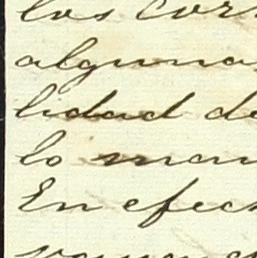 los cor
alguna
lidad de
lo man
En efec